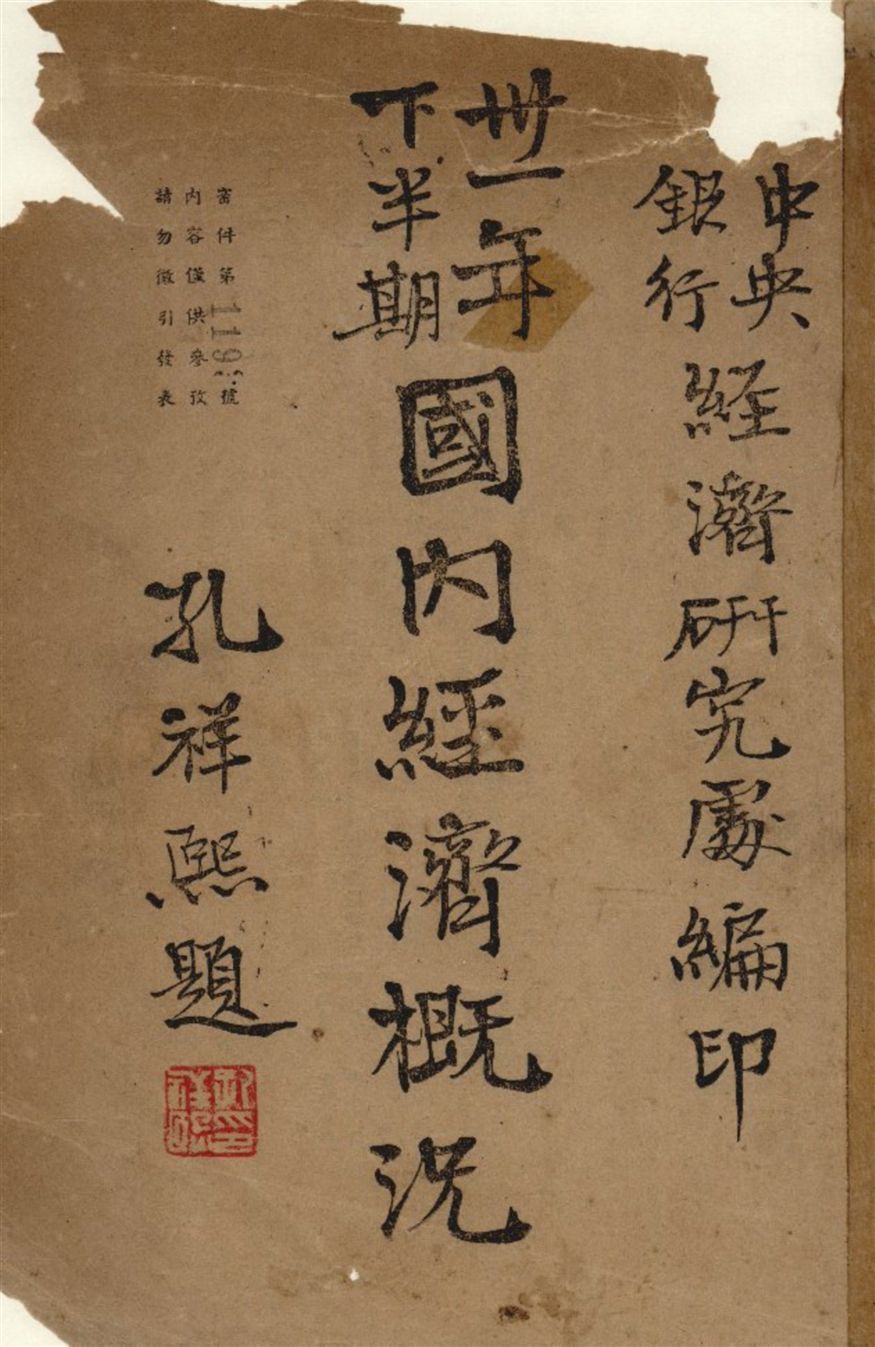 中央
銀行
経濟研究處編印
卅一年
下半期
國內經濟概況
密件第號
內容僅供參攷
請勿徵引發表
孔祥熙題